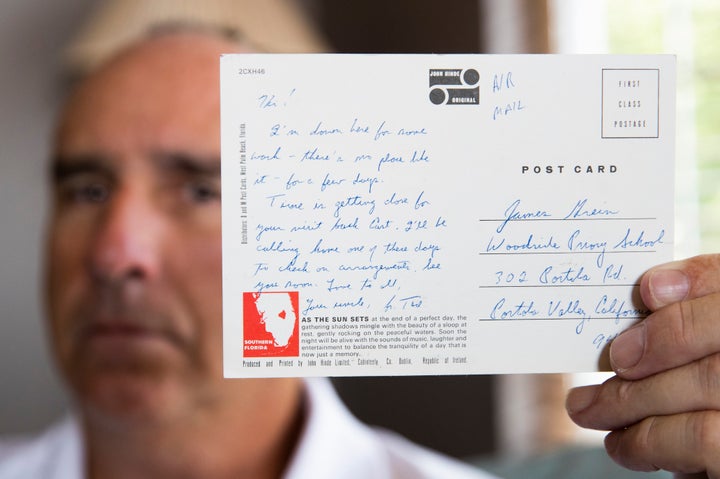 2CXH46
JOHN HINDE
ORIGINAL
AIR
MAIL
FIRST
CLASS
POSTAGE
Distributors: D and M Post Cards, West Palm Beach, Florida.
Hi!
I'm down here for some
work - there's no place like
it - for a few days.
Time is getting close for
your visit back East. I'll be
calling home one of these days
to check on arrangements. See
you soon. Love to all,
Your uncle, Fr. Ted
POST CARD
James Grein
Woodside Priory School
302 Portola Rd.
Portola Valley, California
94
SOUTHERN
FLORIDA
AS THE SUN SETS at the end of a perfect day, the
gathering shadows mingle with the beauty of a sloop at
rest, gently rocking on the peaceful waters. Soon the
night will be alive with the sounds of music, laughter and
entertainment to balance the tranquility of a day that is
now just a memory.
Produced and Printed by John Hinde Limited, Cabinteely, Co. Dublin, Republic of Ireland.